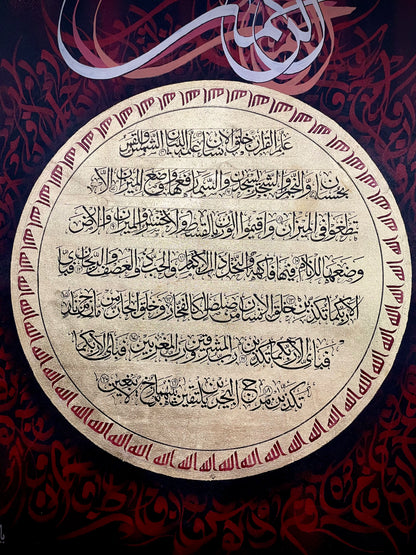 الرحمن
علم القرآن خلق الإنسان علمه البيان الشمس والقمر
بحسبان والنجم والشجر يسجدان والسماء رفعها ووضع الميزان ألا
تطغوا في الميزان وأقيموا الوزن بالقسط ولا تخسروا الميزان والأرض
وضعها للأنام فيها فاكهة والنخل ذات الأكمام والحب ذو العصف والريحان فبأي
آلاء ربكما تكذبان خلق الإنسان من صلصال كالفخار وخلق الجان من مارج من نار
فبأي آلاء ربكما تكذبان رب المشرقين ورب المغربين فبأي آلاء ربكما
تكذبان مرج البحرين يلتقيان بينهما برزخ لا يبغيان
الله الله الله الله الله الله الله الله الله الله